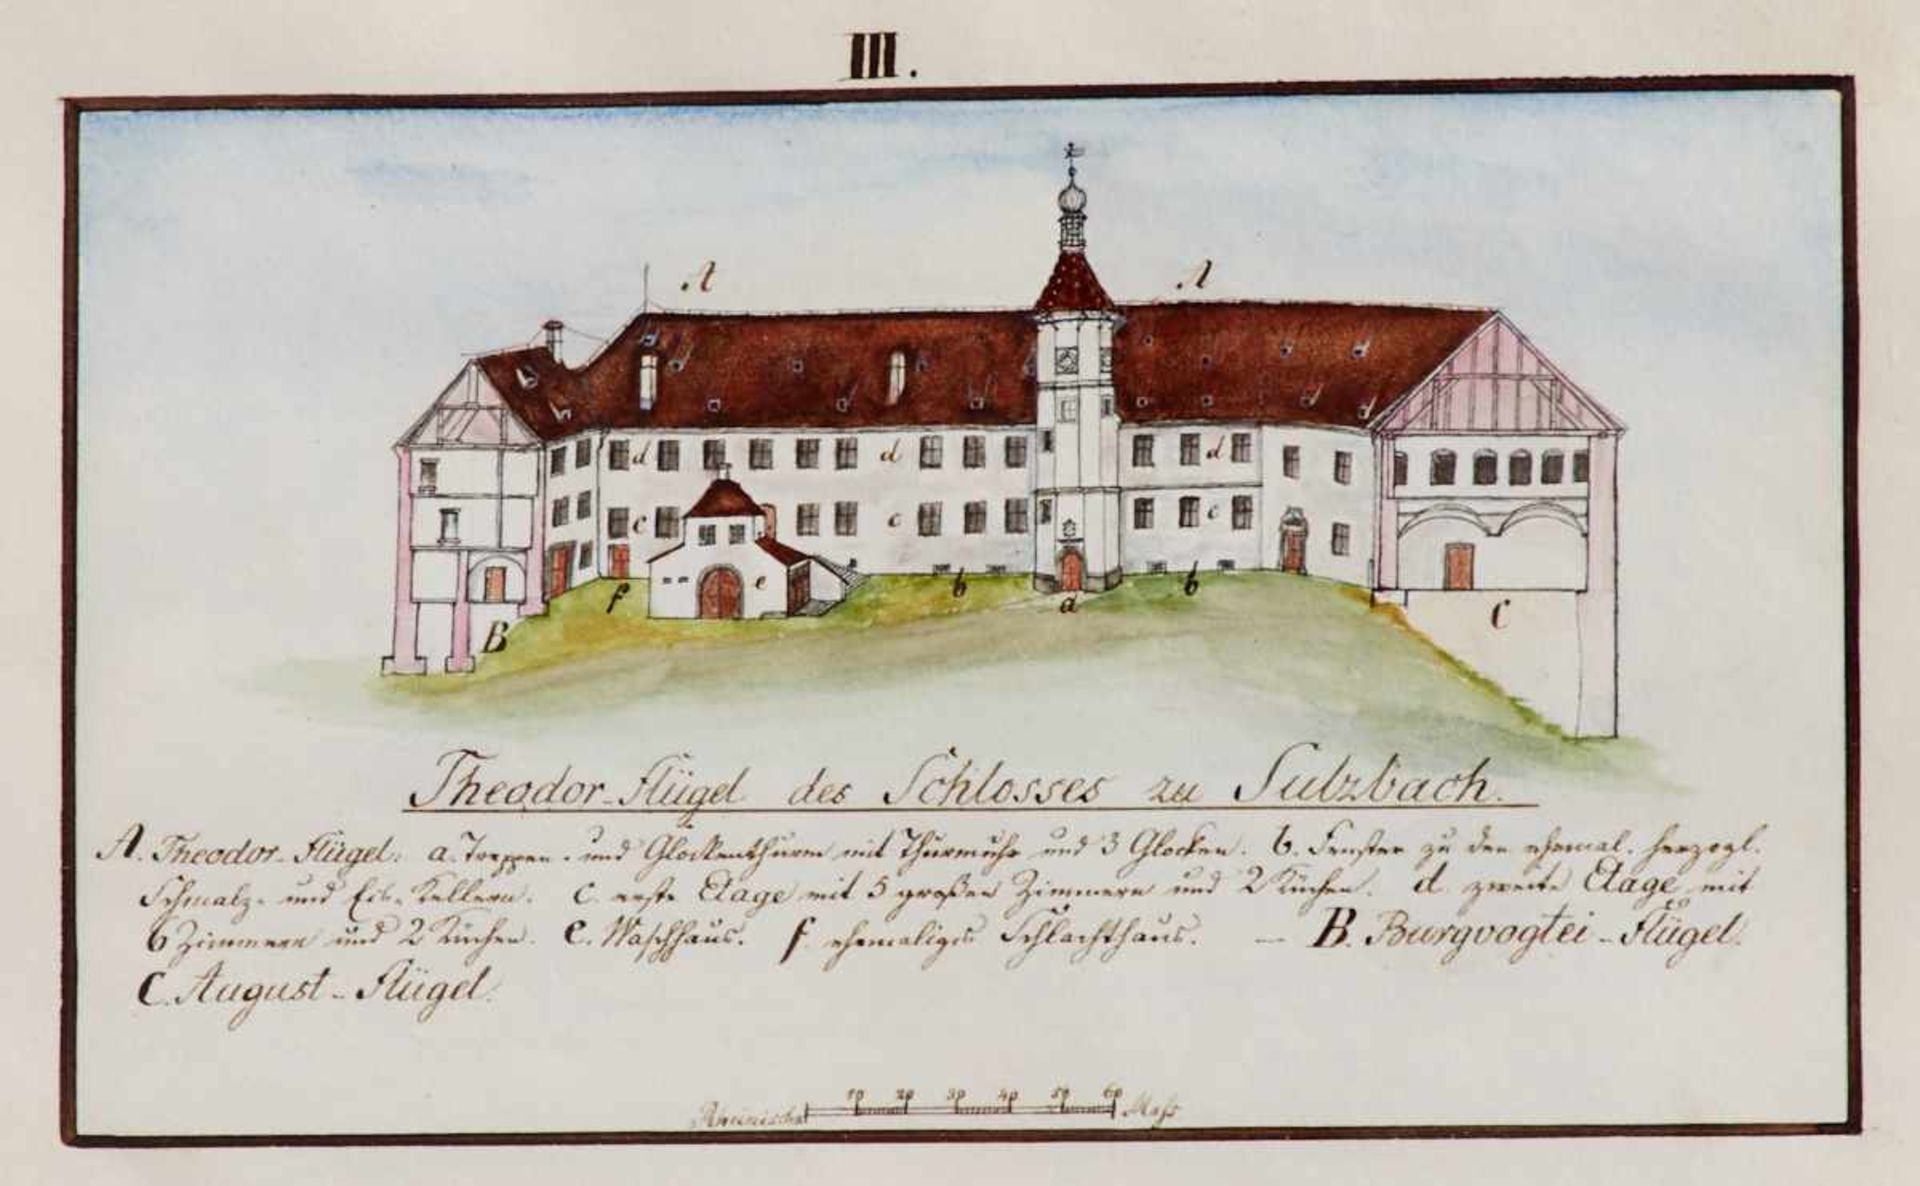 III.
A A
d d d
c c c
e
f b a b
B C
Theodor-Flügel des Schlosses zu Sulzbach.
A. Theodor-Flügel. a. Treppen- und Glockenthurm mit Thurmuhr und 3 Glocken. b. Fenster zu den ehemal. herzogl.
Schmalz- und Eis-Kellern. c. erste Etage mit 5 großen Zimmern und 2 Küchen. d. zweite Etage mit
6 Zimmern und 2 Küchen. e. Waschhaus. f. ehemaliges Schlachthaus. — B. Burgvogtei-Flügel.
C. August-Flügel.
10 20 30 40 50 60
Rheinische Maß